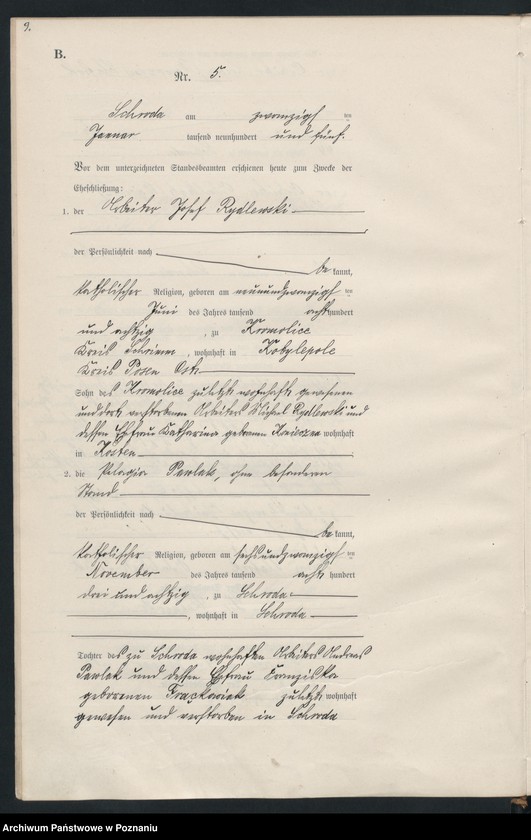 9.
B.
Nr. 5.
Schroda am zwanzigsten
Januar tausend neunhundert und fünf.
Vor dem unterzeichneten Standesbeamten erschienen heute zum Zwecke der
Eheschließung:
1. der Arbeiter Josef Rydlewski
der Persönlichkeit nach
bekannt,
katholischer Religion, geboren am neunundzwanzigsten
Juni des Jahres tausend achthundert
und achtzig , zu Kromolice
Kreis Schrimm , wohnhaft in Kobylepole
Kreis Posen Ost
Sohn des Kromolice zuletzt wohnhaft gewesenen
und dort verstorbenen Arbeiters Michael Rydlewski und
dessen Ehefrau Katharina geborenen wohnhaft
in Kosten
2. die Pelagia Pawlak, ohne besonderen
Stand
der Persönlichkeit nach
bekannt,
katholischer Religion, geboren am sechsundzwanzigsten
November des Jahres tausend acht hundert
drei und achtzig , zu Schroda
, wohnhaft in Schroda
Tochter des zu Schroda wohnhaften Arbeiters Andreas
Pawlak und dessen Ehefrau Franziska
geborenen zuletzt wohnhaft
gewesen und verstorben in Schroda
Archiwum Państwowe w Poznaniu